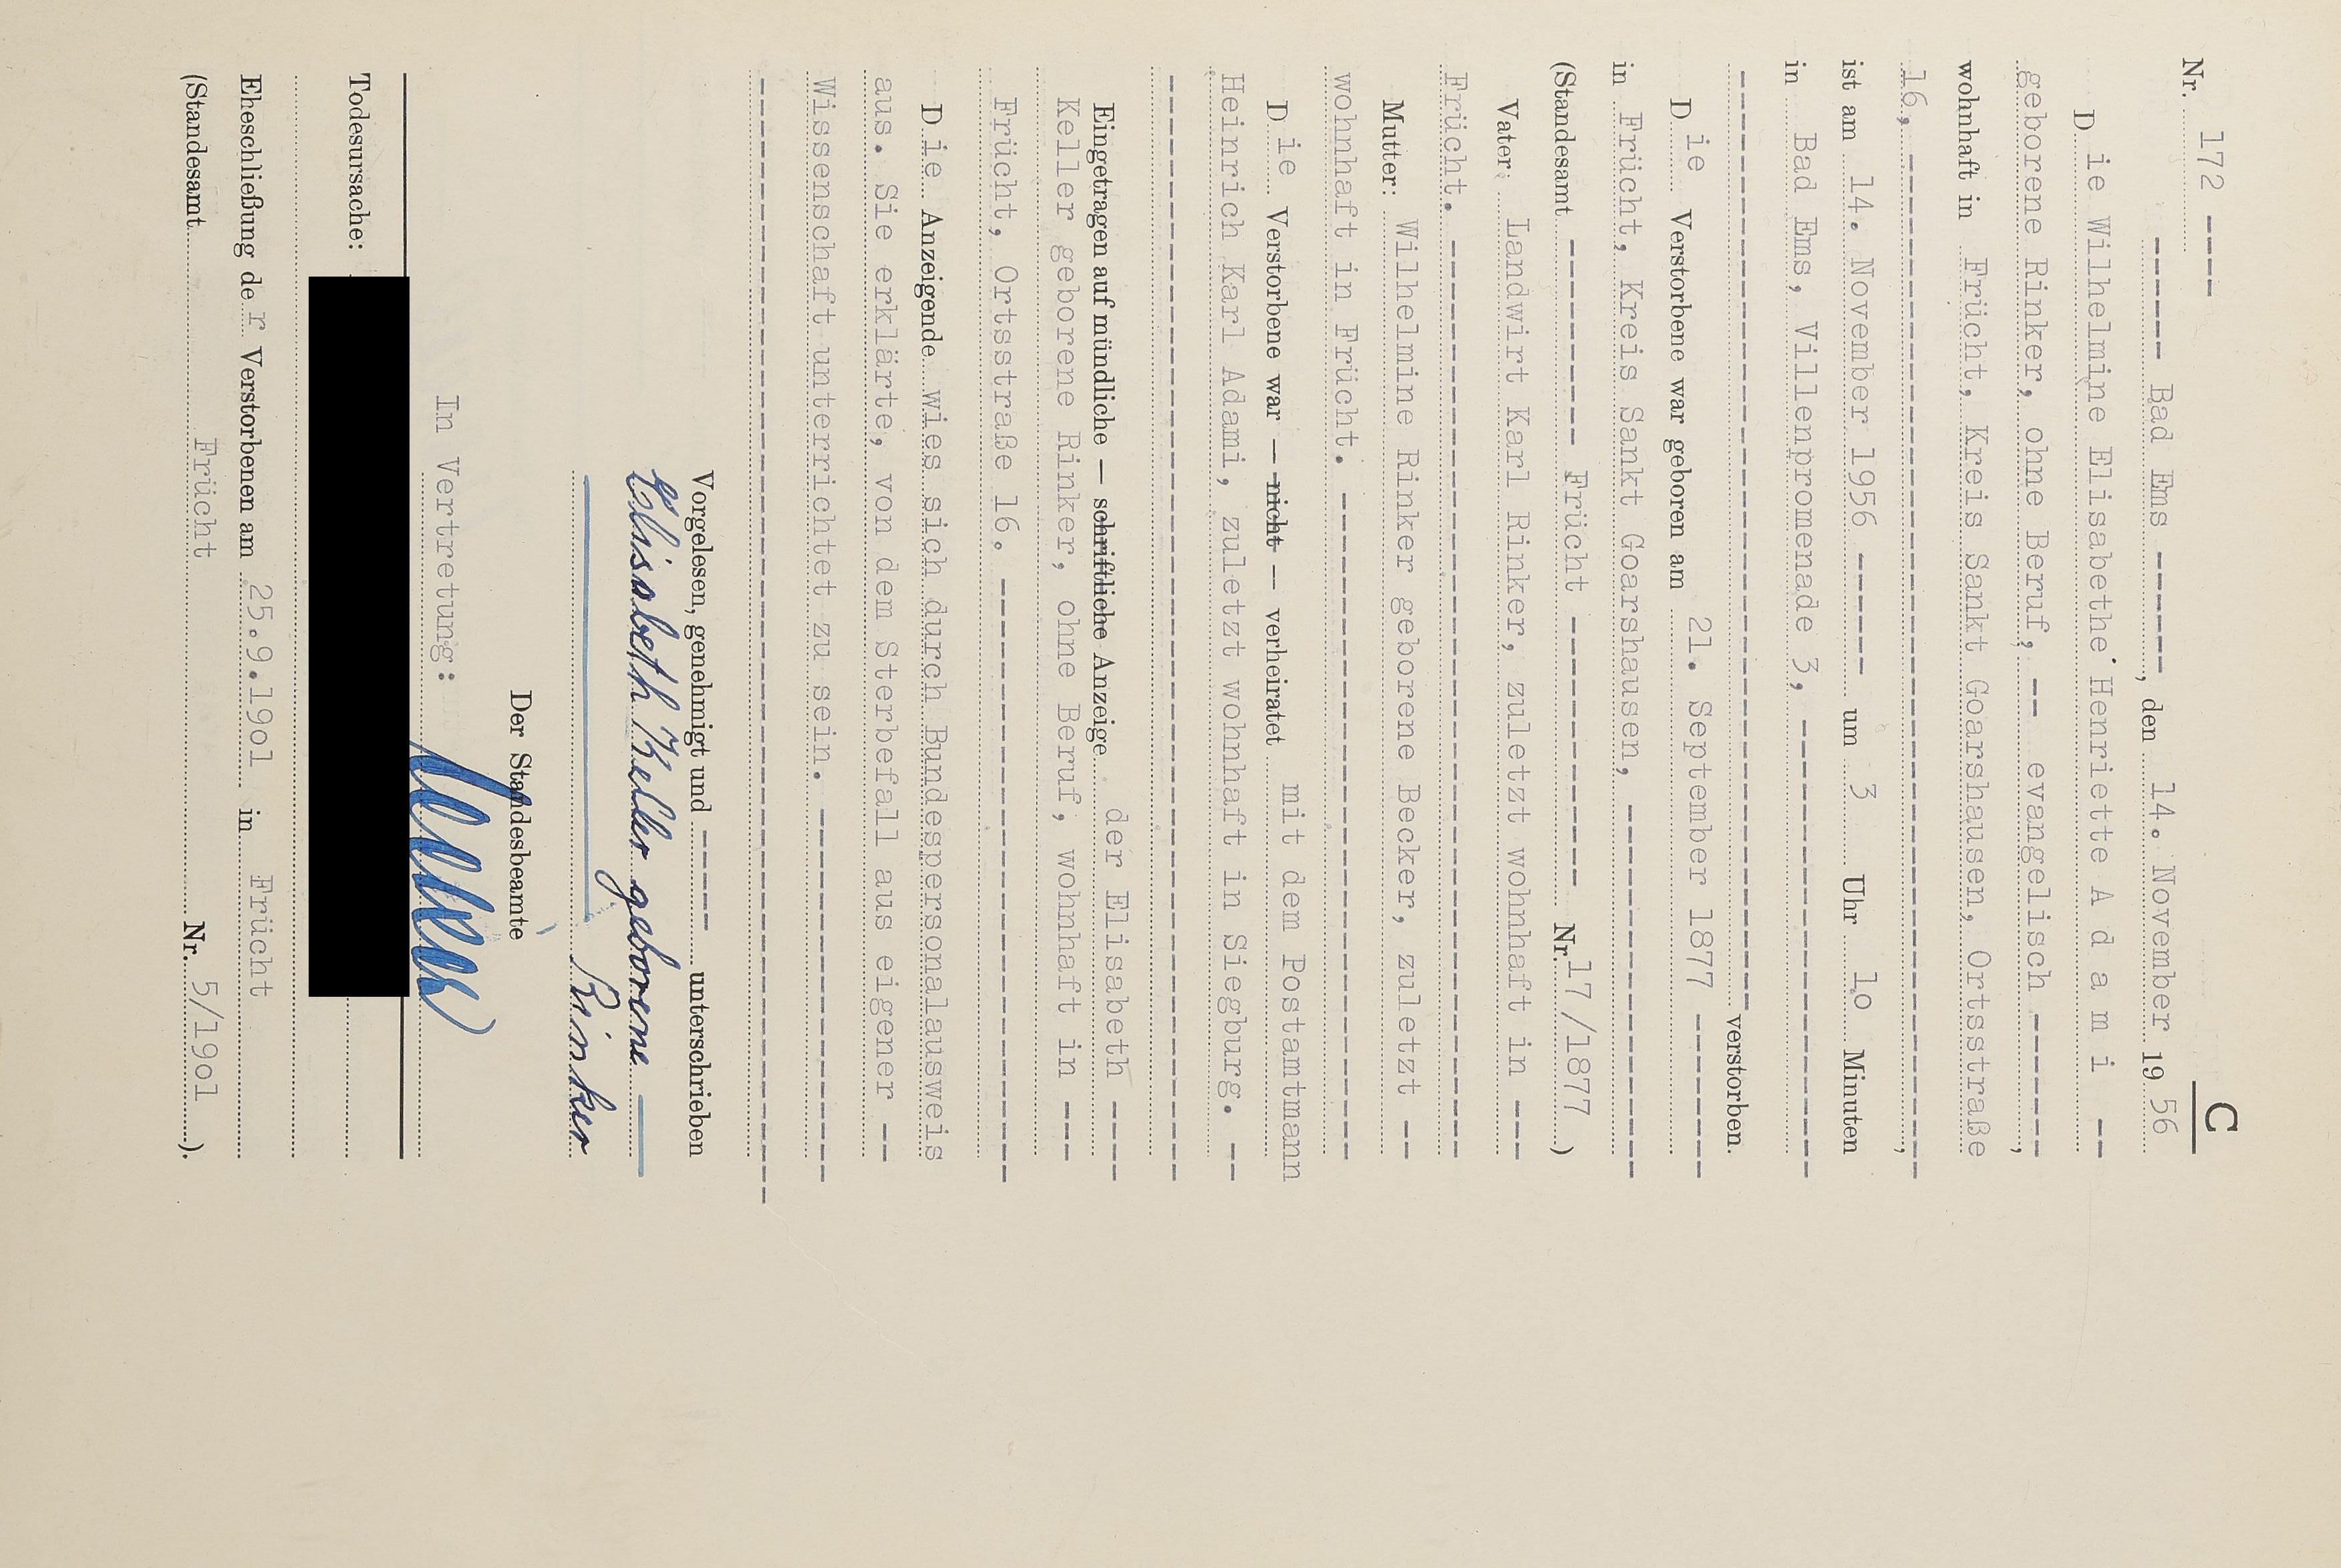 C
Nr. 172 ----
----- Bad Ems -----, den 14. November 19 56
Die Wilhelmine Elisabethe Henriette A d a m i --
geborene Rinker, ohne Beruf, -- evangelisch ------,
wohnhaft in Frücht, Kreis Sankt Goarshausen, Ortsstraße
16, ----------,
ist am 14. November 1956 ------ um 3 Uhr 10 Minuten
in Bad Ems, Villenpromenade 3, ----------
---------- verstorben.
Die Verstorbene war geboren am 21. September 1877 -------
in Frücht, Kreis Sankt Goarshausen, ----------
(Standesamt ---------- Frücht ---------- Nr. 17/1877)
Vater: Landwirt Karl Rinker, zuletzt wohnhaft in ---
Frücht. ----------
Mutter: Wilhelmine Rinker geborene Becker, zuletzt --
wohnhaft in Frücht. ----------
Die Verstorbene war — nicht — verheiratet mit dem Postamtmann
Heinrich Karl Adami, zuletzt wohnhaft in Siegburg. --
----------
Eingetragen auf mündliche — schriftliche Anzeige der Elisabeth ----
Keller geborene Rinker, ohne Beruf, wohnhaft in ---
Frücht, Ortsstraße 16. ----------
Die Anzeigende wies sich durch Bundespersonalausweis
aus. Sie erklärte, von dem Sterbefall aus eigener --
Wissenschaft unterrichtet zu sein. ----------
----------
Vorgelesen, genehmigt und ----- unterschrieben
Elisabeth Keller geborene
Rinker
Der Standesbeamte
In Vertretung:
Todesursache:
Eheschließung der Verstorbenen am 25.9.1901 in Frücht
(Standesamt Frücht Nr. 5/1901).